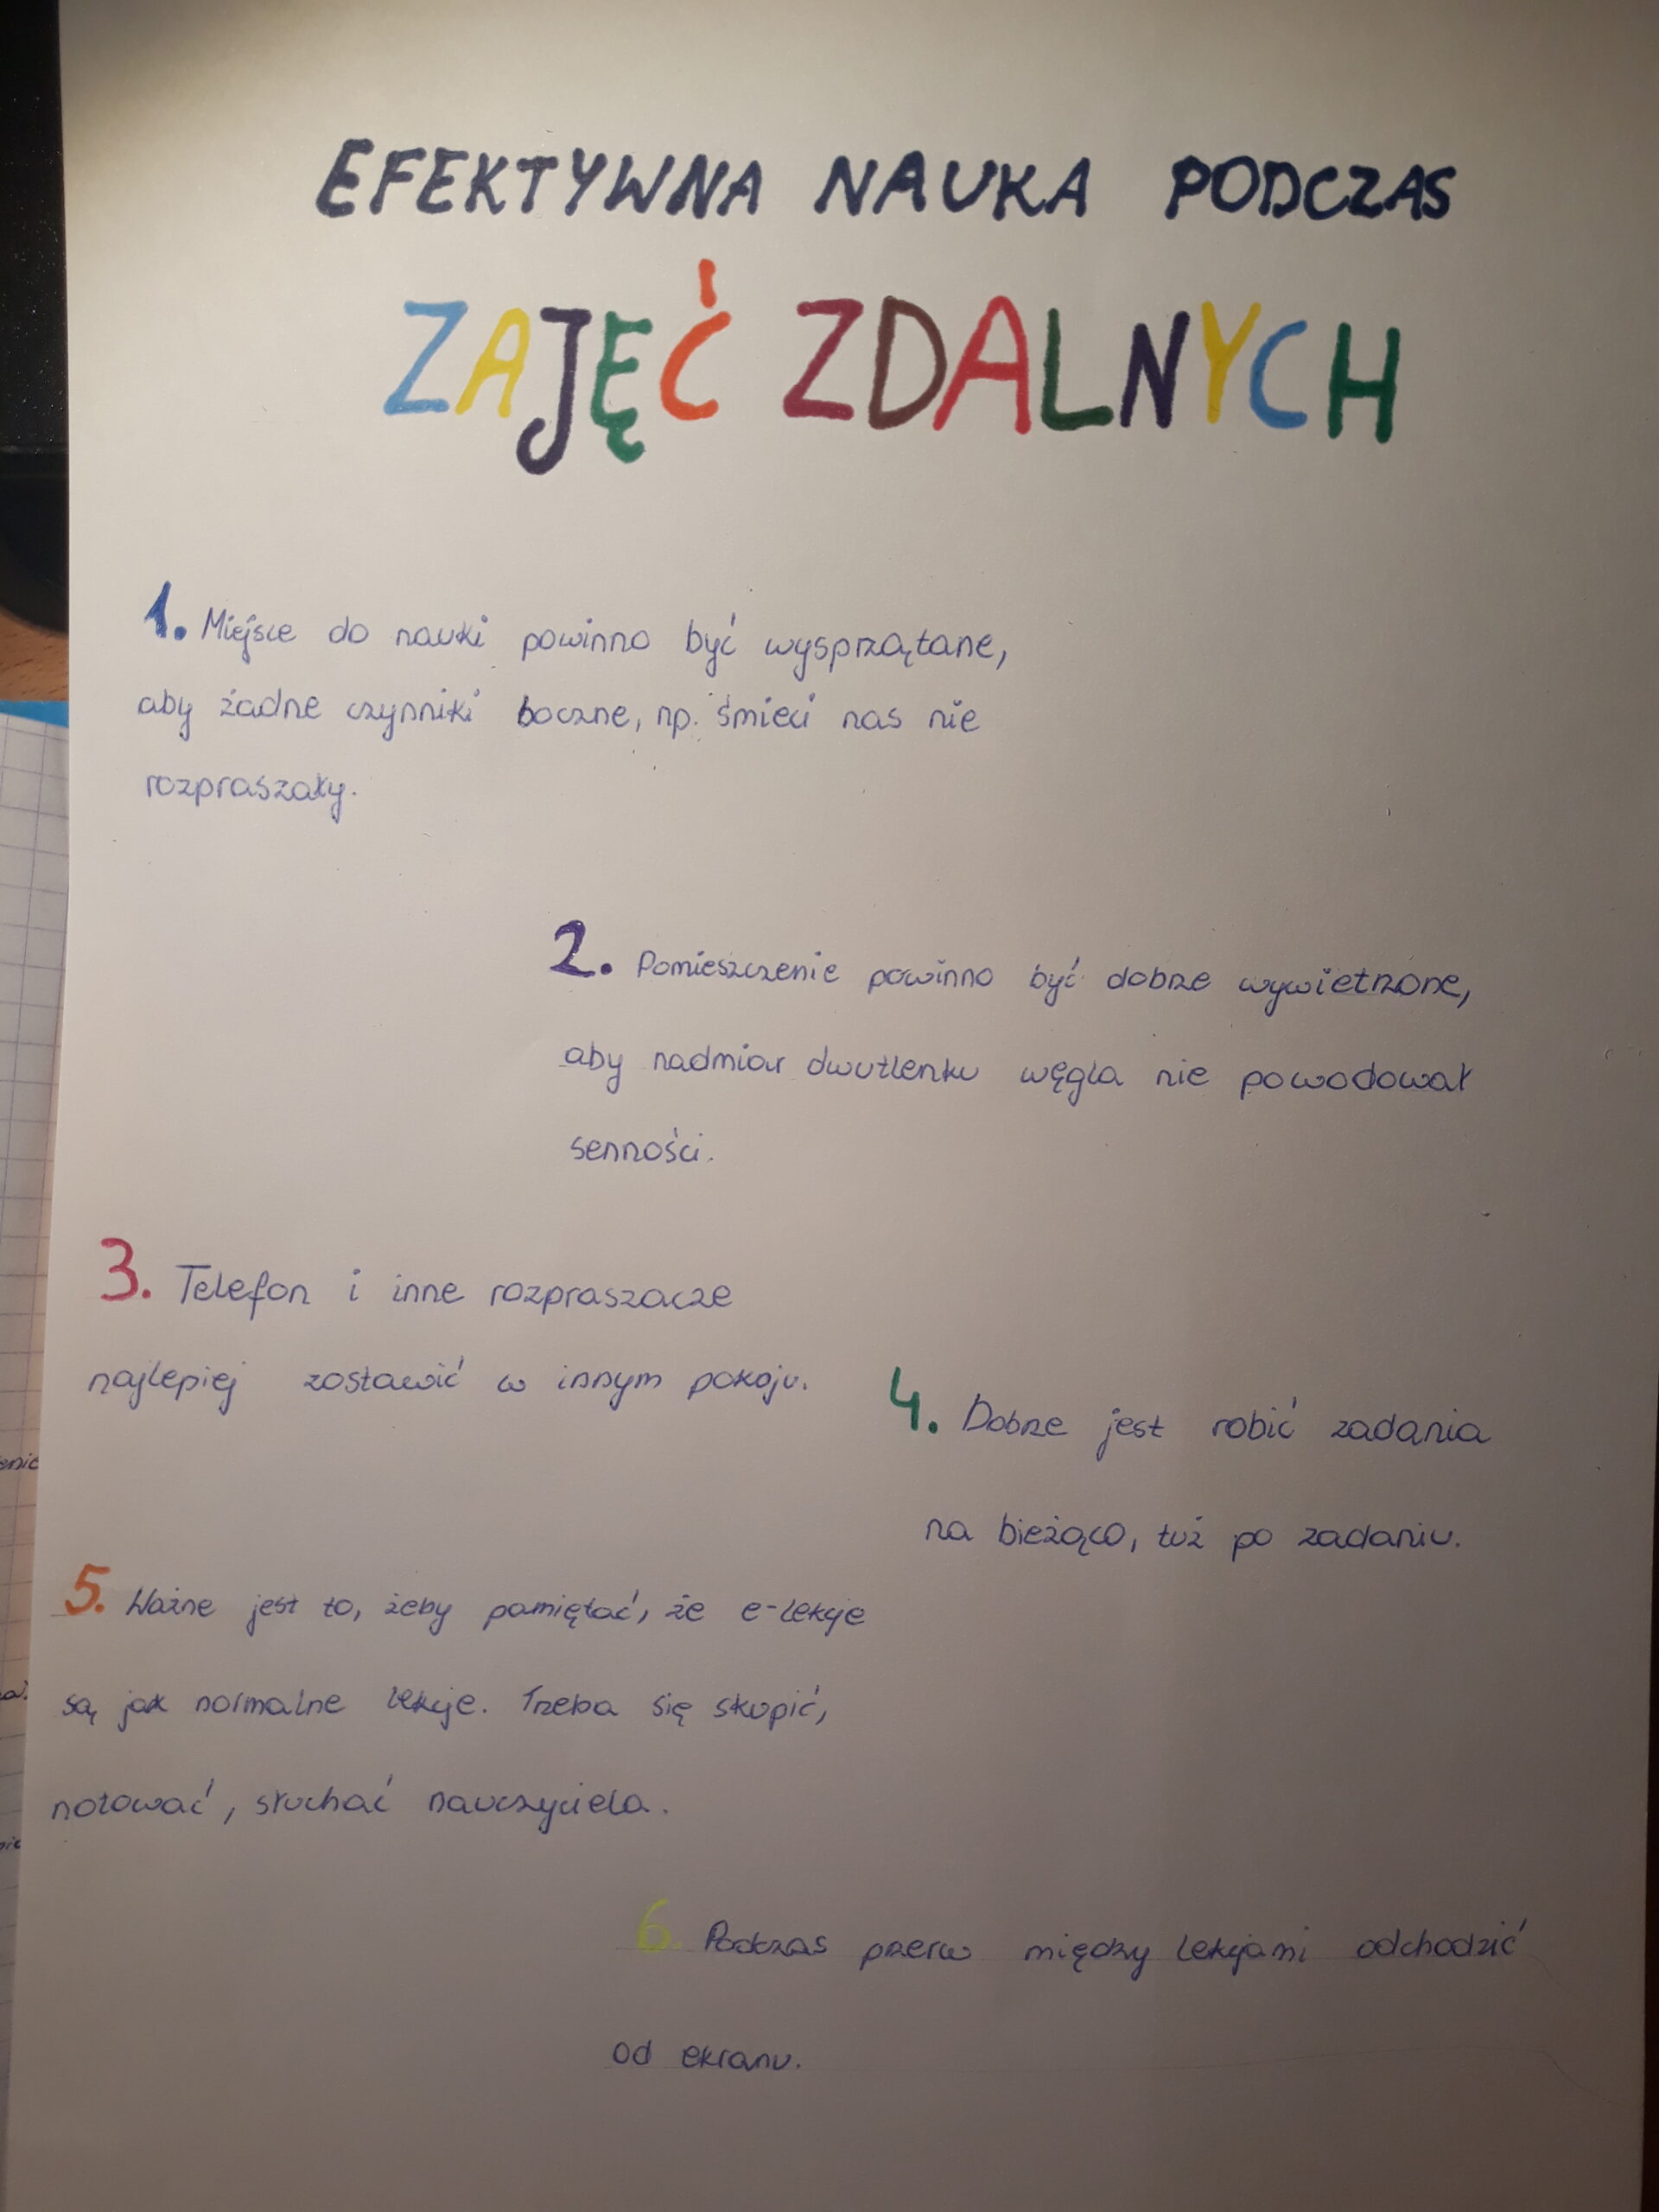 EFEKTYWNA NAUKA PODCZAS
ZAJĘĆ ZDALNYCH
1. Miejsce do nauki powinno być wysprzątane,
aby żadne czynniki boczne, np. śmieci nas nie
rozpraszały.
2. Pomieszczenie powinno być dobrze wywietrzone,
aby nadmiar dwutlenku węgla nie powodował
senności.
3. Telefon i inne rozpraszacze
najlepiej zostawić w innym pokoju.
4. Dobrze jest robić zadania
na bieżąco, tuż po zadaniu.
5. Ważne jest to, żeby pamiętać, że e-lekcje
są jak normalne lekcje. Trzeba się skupić,
notować, słuchać nauczyciela.
6. Podczas przerw między lekcjami odchodzić
od ekranu.